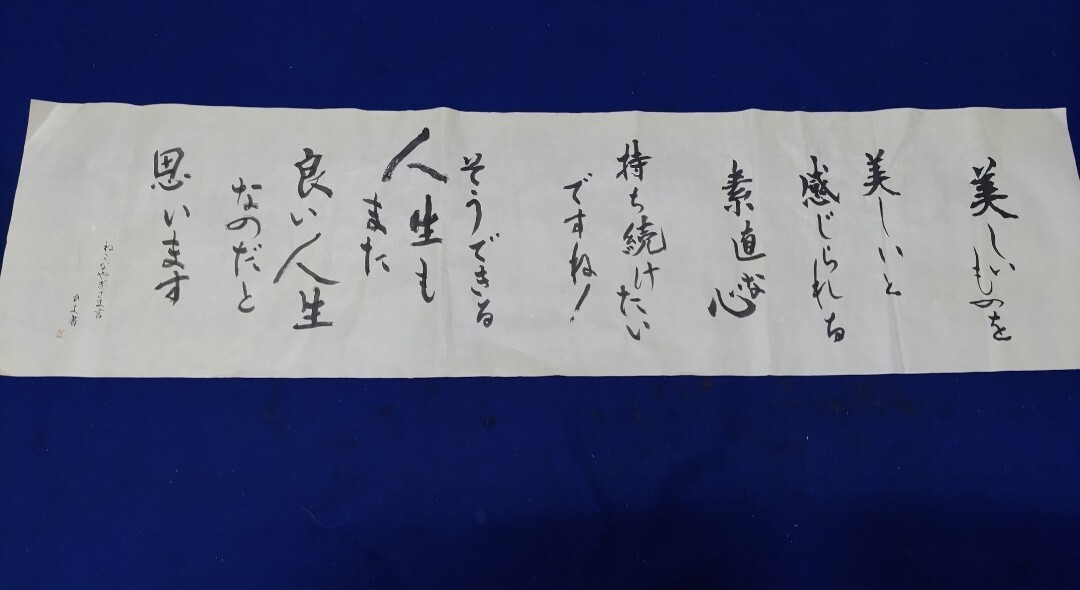 美しいものを
美しいと
感じられる
素直な
心
持ち続けたい
ですね!
そうできる
人生も
また
良い人生
なのだと
思います